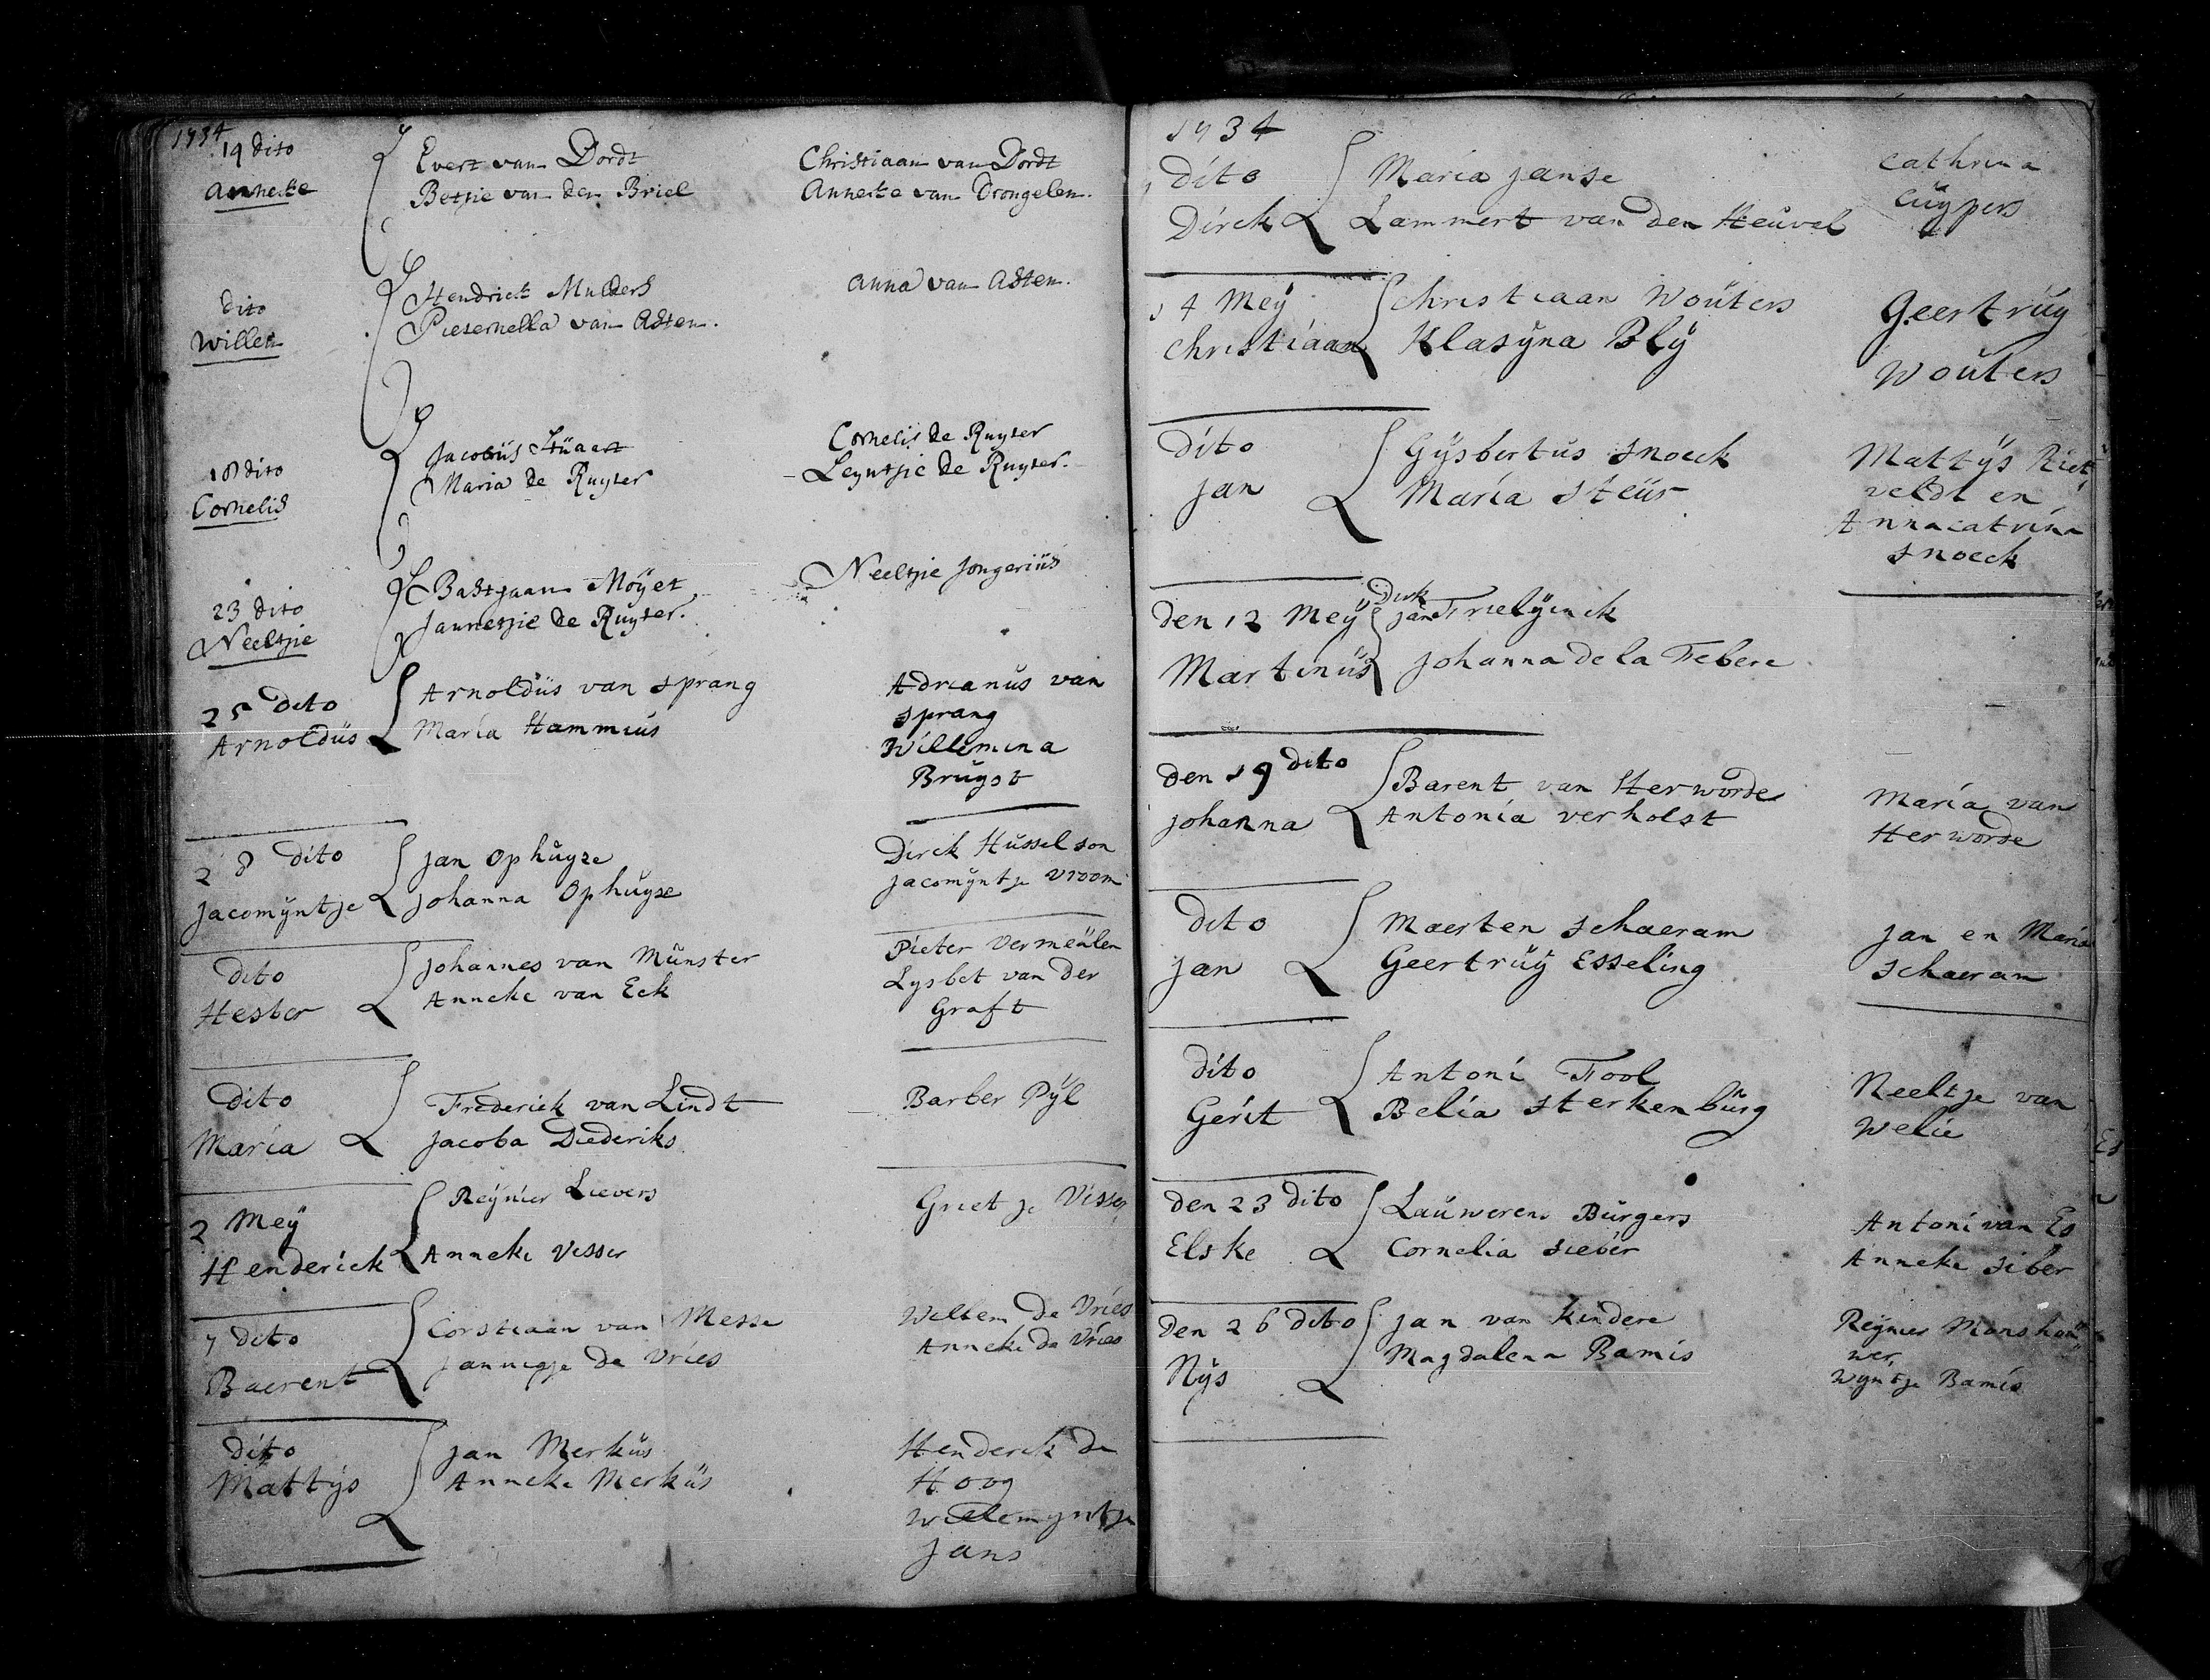 1734
19 dito
Anneke
Evert van Dordt
Betjie van den Briel
Christiaan van Dordt
Anneke van Drongelen.
dito
Willem
Hendrick Mulders
Pieternella van Asten.
Anna van Asten.
18 dito
Cornelis
Jacobüs Stüaert
Maria de Ruyter
Cornelis de Ruyter
Leyntjie de Ruyter.
23 dito
Neeltjie
Bastjaan Moÿet
Jannetjie de Ruyter.
Neeltjie Jongeriüs
25 dito
Arnoldüs
Arnoldüs van Sprang
Maria Hammius
Adrianus van
Sprang
Willemina
Brugst
28 dito
Jacomÿntje
Jan Ophuyze
Johanna Ophuyse
Dirck Husselson
Jacomÿntje Vroom
dito
Hester
Johannes van Munster
Anneke van Eck
Pieter Vermeulen
Lysbet van der
Graft
dito
Maria
Frederick van Lindt
Jacoba Diederiks
Barber Pÿl
2 Meÿ
Henderick
Reÿnier Lievers
Anneke Visser
Grietje Visser
7 dito
Baerent
Corstiaan van Messe
Jannigje de Vries
Willem de Vries
Anneke de Vries
dito
Mattÿs
Jan Merküs
Anneke Merküs
Henderik de
Hoog
Willemyntje
Jans
1734
dito
Dirck
Maria Janse
Lammert van den Heuvel
Cathrina
Cuÿpers
4 Meÿ
Christiaan
Christiaan Wouters
Klasÿna Blÿ
Geertruy
Wouters
dito
Jan
Gÿsbertus Snoeck
Maria Steür
Mattÿs Riet
veldt en
Annacatrina
Snoeck
den 12 Meÿ
Martinüs
Dirk
Jan Frielÿnck
Johanna de la Febere
den 19 dito
Johanna
Barent van Herworde
Antonia verholst
Maria van
Herworde
dito
Jan
Maerten Schaeram
Geertruÿ Esseling
Jan en Maria
Schaeram
dito
Gerit
Antoni Fool
Belia Sterkenbürg
Neeltje van
Welie
den 23 dito
Elske
Lauwerens Burgers
Cornelia Sieber
Antoni van Es
Anneke Siber
den 26 dito
Nÿs
Jan van Kindere
Magdalena Bamis
Reÿnier Monshou
wer,
Wÿntje Bamis